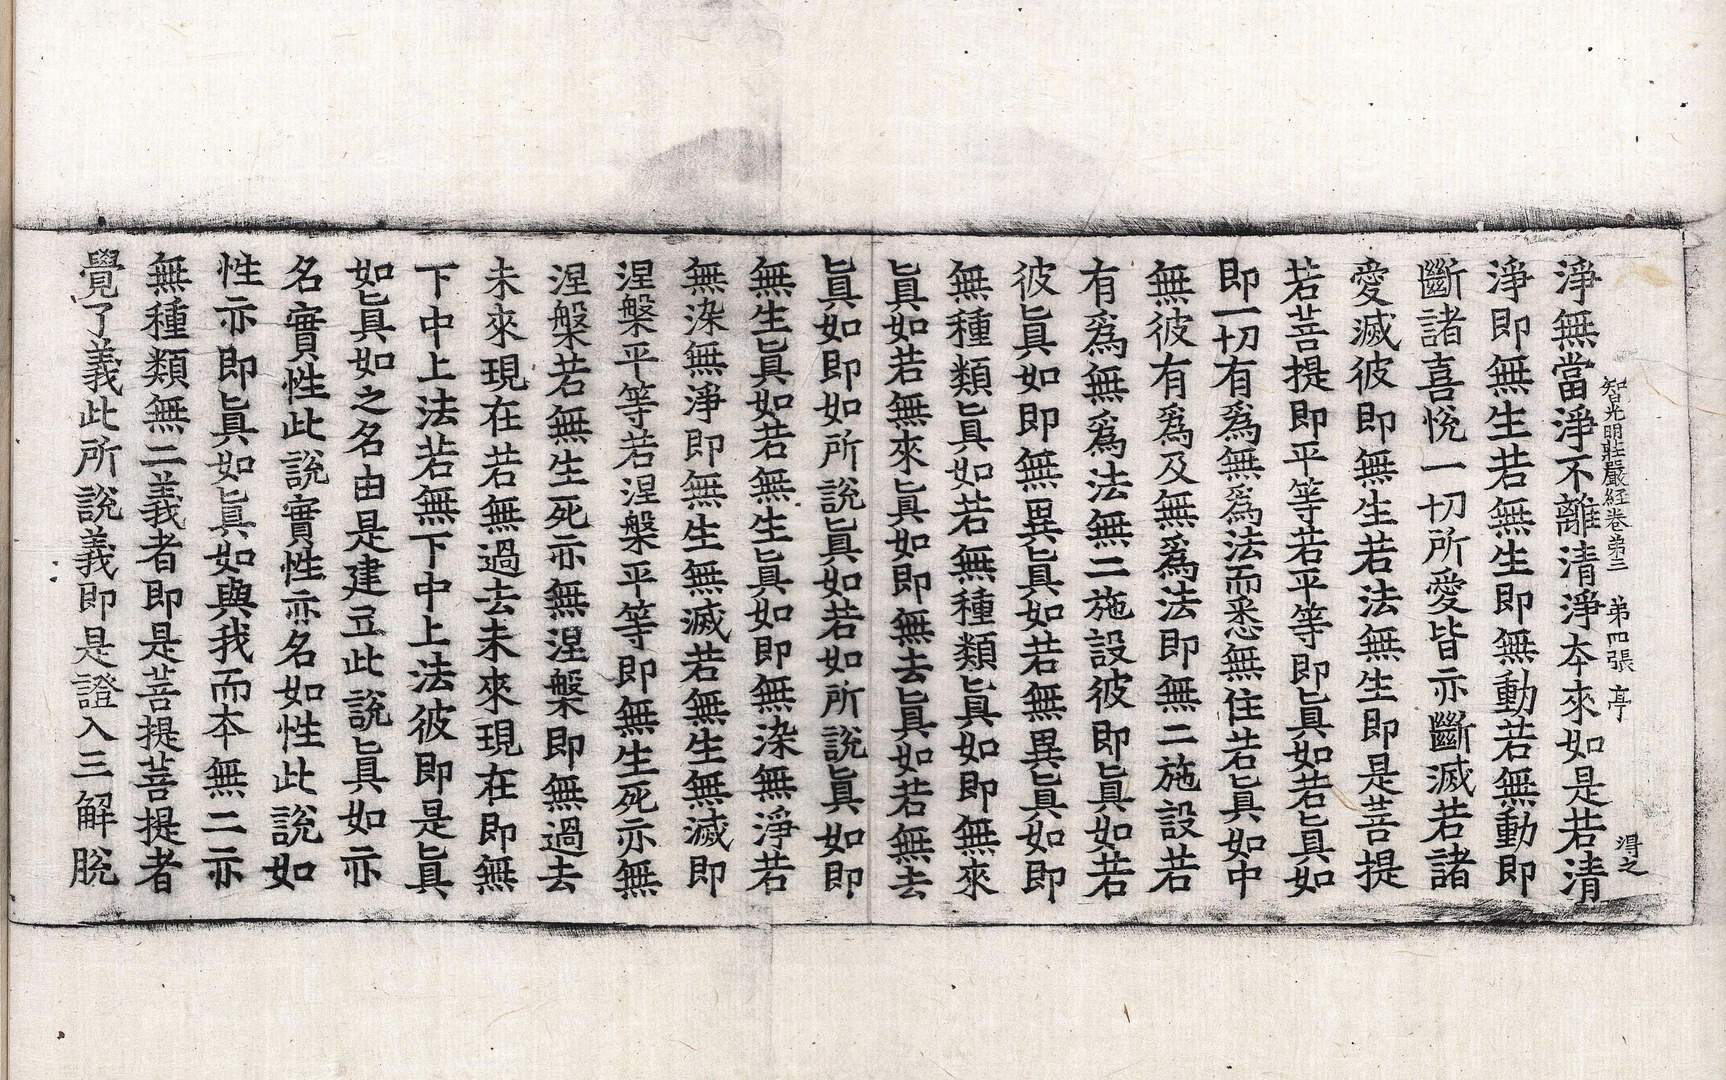 智光明莊嚴經卷弟三　弟四張　亭　得之
淨無當淨不離清淨本來如是若清
淨即無生若無生即無動若無動即
斷諸喜悅一切所愛皆亦斷滅若諸
愛滅彼即無生若法無生即是菩提
若菩提即平等若平等即眞如若眞如
即一切有爲無爲法而悉無住若眞如中
無彼有爲及無爲法即無二施設若
有爲無爲法無二施設彼即眞如若
彼眞如即無異眞如若無異眞如即
無種類眞如若無種類眞如即無來
眞如若無來眞如即無去眞如若無去
眞如即如所說眞如若如所說眞如即
無生眞如若無生眞如即無染無淨若
無染無淨即無生無滅若無生無滅即
涅槃平等若涅槃平等即無生死亦無
涅槃若無生死亦無涅槃即無過去
未來現在若無過去未來現在即無
下中上法若無下中上法彼即是眞
如眞如之名由是建立此說眞如亦
名實性此說實性亦名如性此說如
性亦即眞如眞如與我而本無二亦
無種類無二義者即是菩提菩提者
覺了義此所說義即是證入三解脫